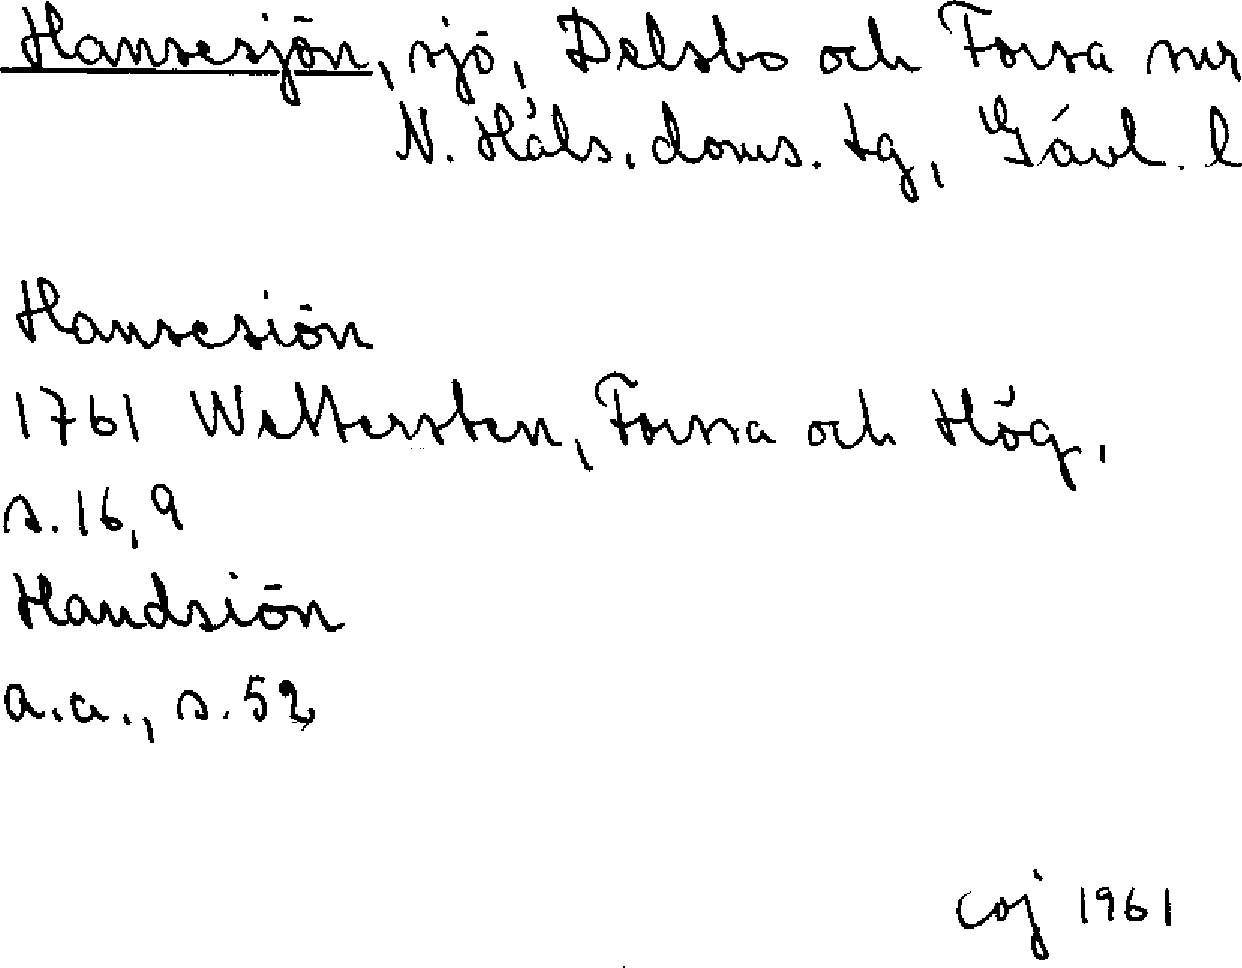 Hansesjön, sjö, Delsbo och Forsa snr
N. Häls. doms. tg, Gävl. l
Hansesiön
1761 Wettersten, Forssa och Hög,
s. 16, 9
Handsiön
a.a., s. 52
coj 1961